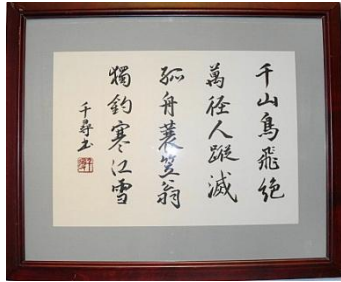 千山鳥飛絶
萬徑人蹤滅
孤舟蓑笠翁
獨釣寒江雪
千尋書